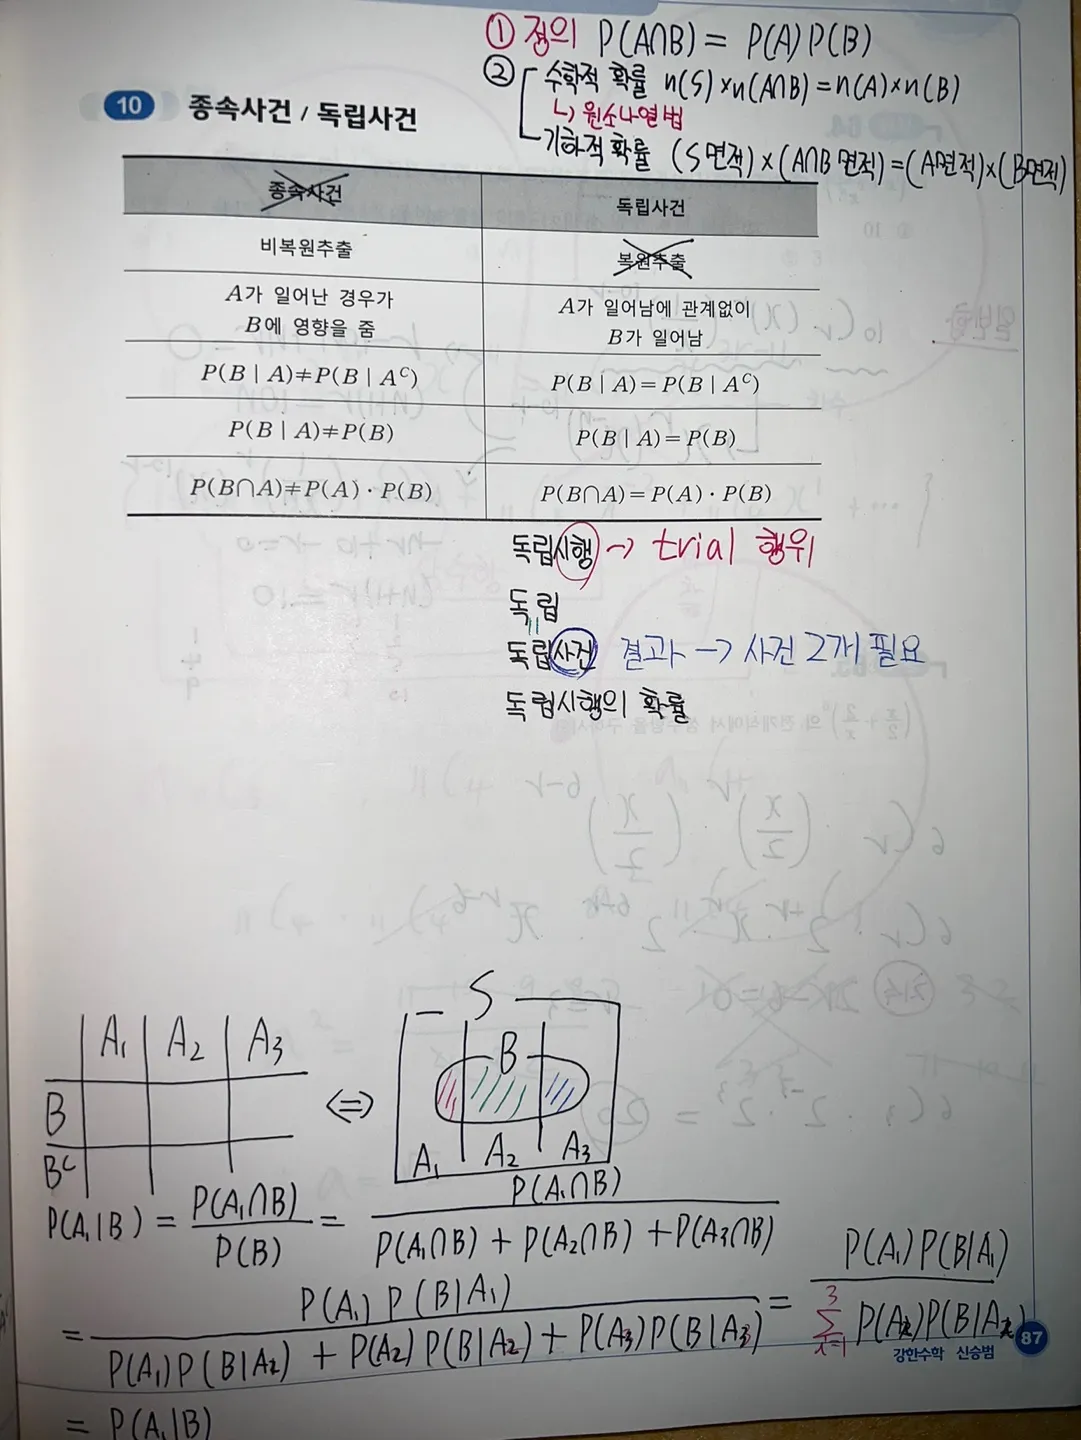 ① 정의 P(A∩B) = P(A)P(B)
② 수학적 확률 n(S)×n(A∩B)=n(A)×n(B)
↳ 원소나열법
기하적 확률 (S면적)×(A∩B 면적)=(A면적)×(B면적)
10 종속사건 / 독립사건
종속사건 독립사건
비복원추출 복원추출
A가 일어난 경우가
B에 영향을 줌
A가 일어남에 관계없이
B가 일어남
P(B | A)≠P(B | Aᶜ) P(B | A)=P(B | Aᶜ)
P(B | A)≠P(B) P(B | A)=P(B)
P(B∩A)≠P(A)·P(B) P(B∩A)=P(A)·P(B)
독립시행 → trial 행위
독립
독립사건 결과 → 사건 2개 필요
독립시행의 확률
A₁ A₂ A₃
B
Bᶜ
⇔
S
B
A₁ A₂ A₃
P(A₁|B) = P(A₁∩B) / P(B) = P(A₁∩B) / P(A₁∩B) + P(A₂∩B) + P(A₃∩B)
= P(A₁) P(B|A₁) / P(A₁)P(B|A₂) + P(A₂)P(B|A₂) + P(A₃)P(B|A₃) = P(A₁)P(B|A₁) / 3 Σ P(A)P(B|A
= P(A₁|B)
87
강한수학 신승범